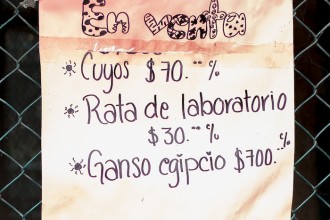 En venta
* Cuyos $70.°°%
* Rata de laboratorio
$30.°°%
* Ganso egipcio $700.°°%